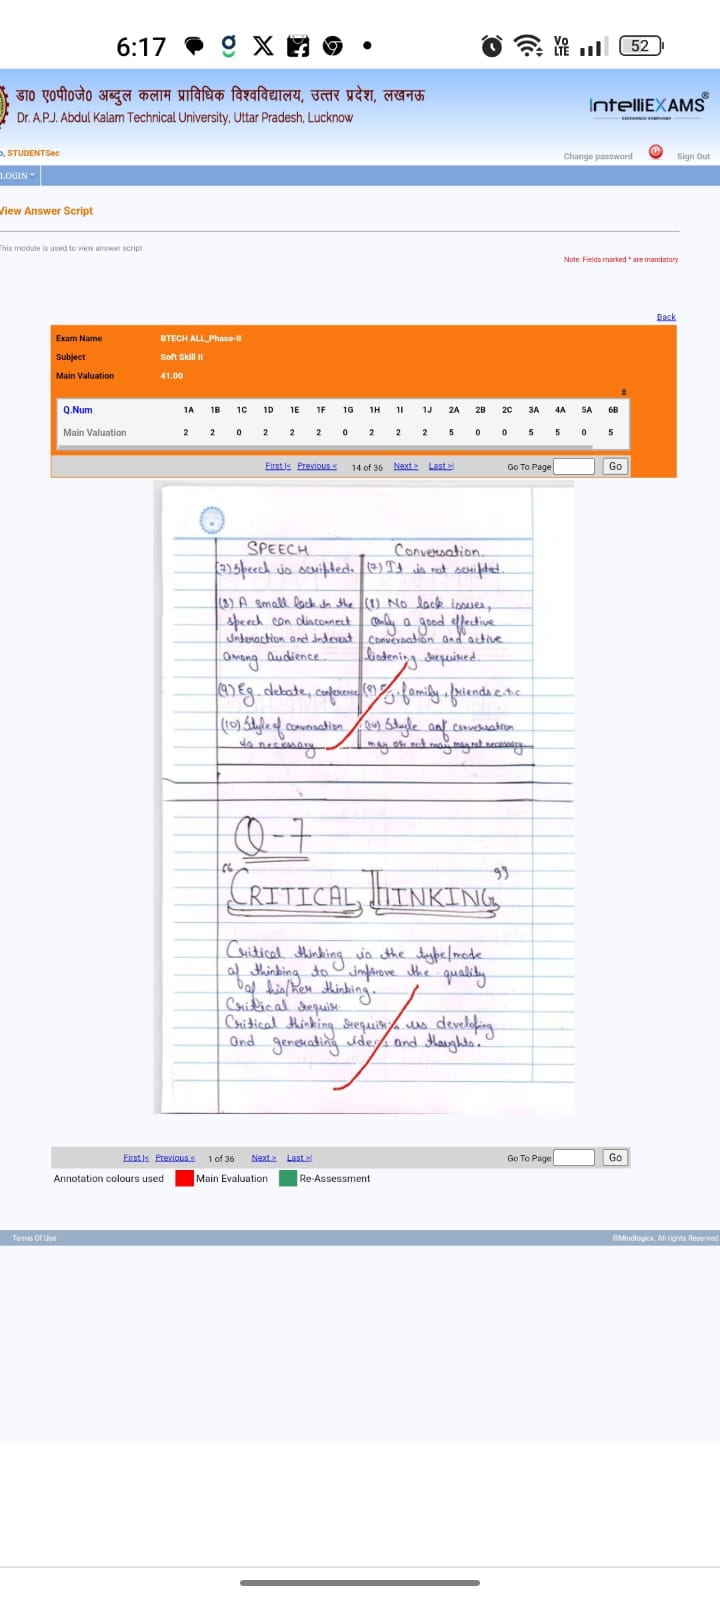 6:17
VO LTE
52
डा० ए०पी०जे० अब्दुल कलाम प्राविधिक विश्वविद्यालय, उत्तर प्रदेश, लखनऊ
Dr. A.P.J. Abdul Kalam Technical University, Uttar Pradesh, Lucknow
IntelliEXAMS
o, STUDENTSec
Change password
Sign Out
LOGIN
View Answer Script
This module is used to view answer script
Note: Fields marked * are mandatory
Back
Exam Name BTECH ALL_Phase-II
Subject Soft Skill II
Main Valuation 41.00
Q.Num 1A 1B 1C 1D 1E 1F 1G 1H 1I 1J 2A 2B 2C 3A 4A 5A 6B
Main Valuation 2 2 0 2 2 2 0 2 2 2 5 0 0 5 5 0 5
First|< Previous < 14 of 36 Next > Last >| Go To Page Go
SPEECH Conversation.
(7) Speech is scripted. (7) It is not scripted.
(8) A small lack in the (8) No lack issues,
speech can disconnect only a good effective
interaction and interest conversation and active
among audience. listening required.
(9) Eg. debate, conference (9) Eg. family, friends e.t.c
(10) Style of conversation (10) Style of conversation
is necessary may or not may may not necessary.
Q-7
"CRITICAL THINKING"
Critical thinking is the type/mode
of thinking to improve the quality
of his/her thinking.
Critical require
Critical thinking requires us developing
and generating ideas and thoughts.
First|< Previous < 1 of 36 Next > Last >| Go To Page Go
Annotation colours used Main Evaluation Re-Assessment
Terms Of Use
©Mindlogicx. All rights Reserved